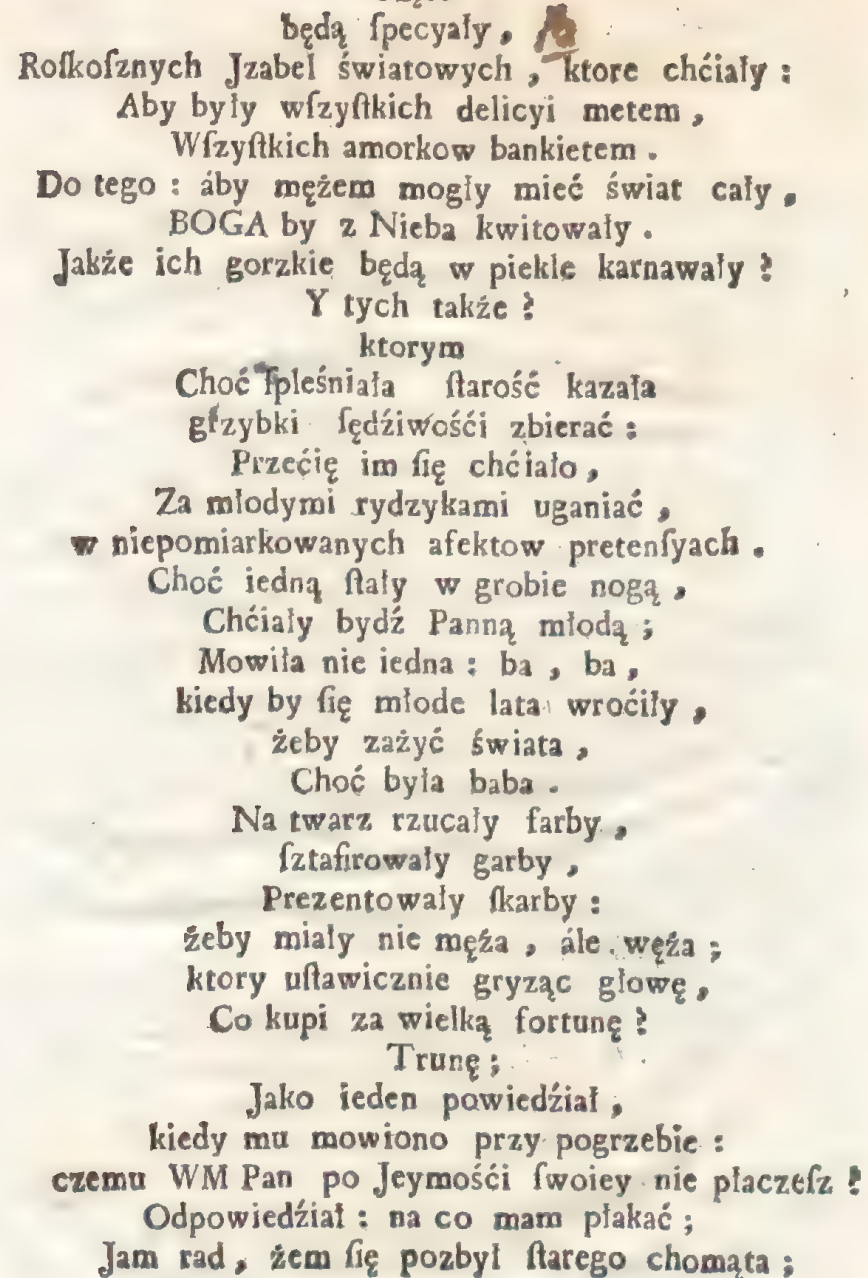 będą ſpecyały,
Roſkoſznych Jzabel światowych, ktore chćiały:
Aby były wſzyſtkich delicyi metem,
Wſzyſtkich amorkow bankietem.
Do tego: áby mężem mogły mieć świat cały,
BOGA by z Nieba kwitowały.
Jakże ich gorzkie będą w piekle karnawały?
Y tych także?
ktorym
Choć ſpleśniała ſtarość kazała
grzybki ſędźiwośći zbierać:
Przećię im ſię chćiało,
Za młodymi rydzykami uganiać,
w niepomiarkowanych afektow pretenſyach.
Choć iedną ſtały w grobie nogą,
Chćiały bydź Panną młodą;
Mowiła nie iedna: ba, ba,
kiedy by ſię młode lata wroćiły,
żeby zażyć świata,
Choć była baba.
Na twarz rzucały farby,
ſztafirowały garby,
Prezentowały ſkarby:
żeby miały nie męża, ále węża;
ktory uſtawicznie gryząc głowę,
Co kupi za wielką fortunę?
Trunę;
Jako ieden powiedźiał,
kiedy mu mowiono przy pogrzebie:
czemu WM Pan po Jeymośći ſwoiey nie płaczeſz?
Odpowiedźiał: na co mam płakać;
Jam rad, żem ſię pozbył ſtarego chomąta;